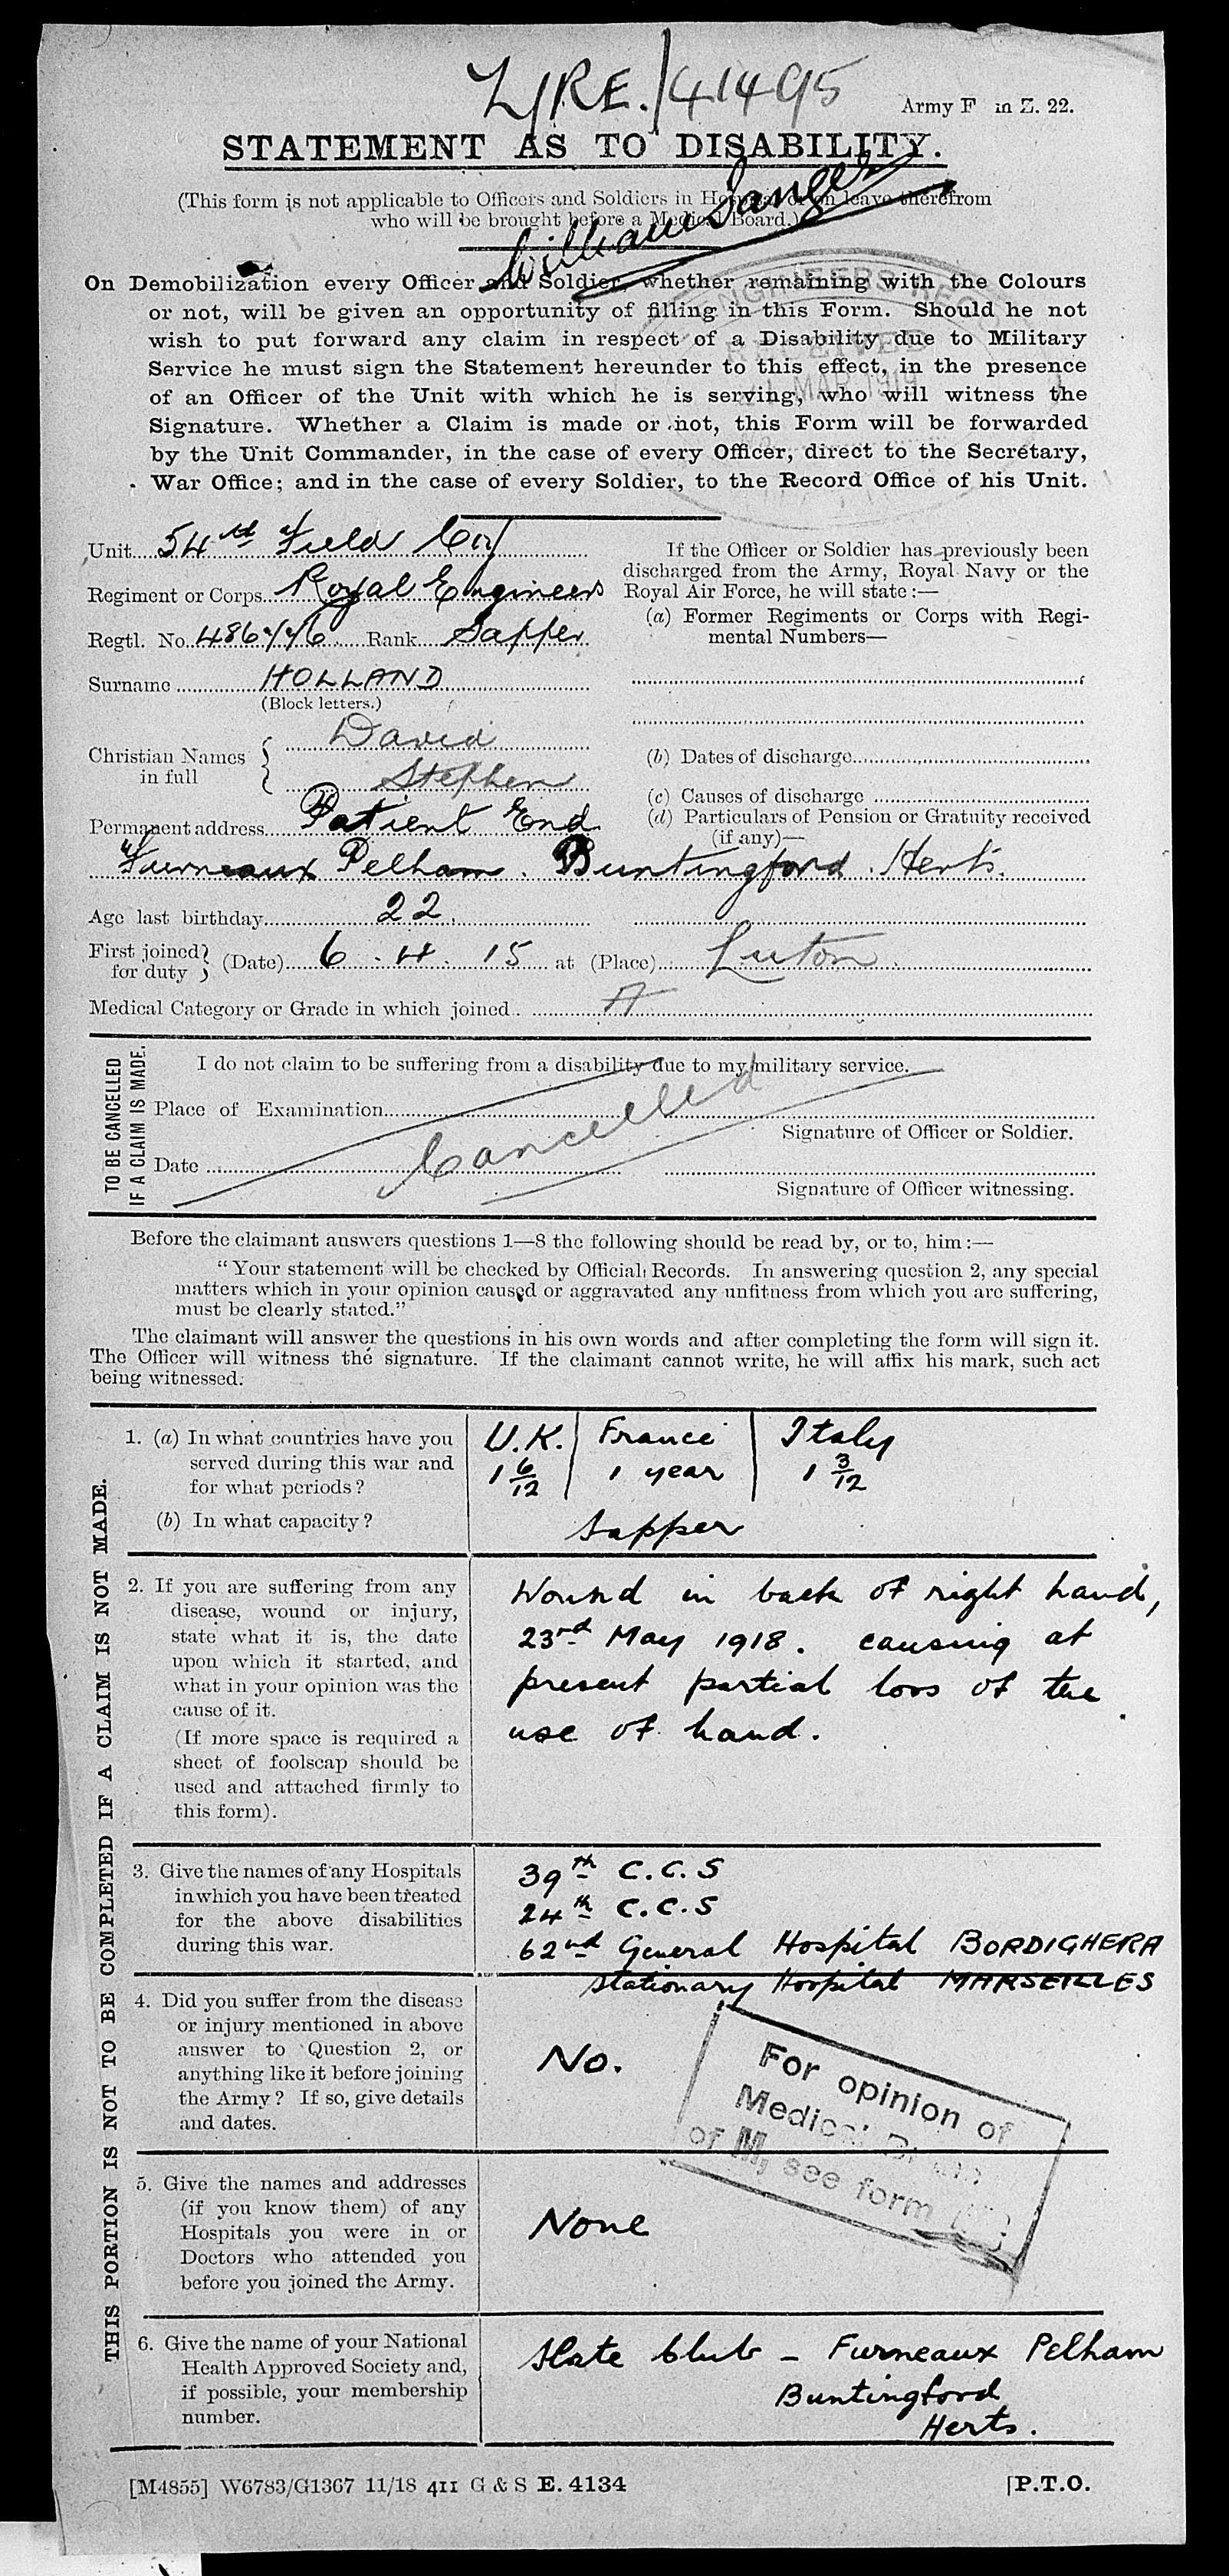 Z/RE./41495
Army F in Z. 22.
STATEMENT AS TO DISABILITY.
(This form is not applicable to Officers and Soldiers in Hospital or on leave therefrom
who will be brought before a Medical Board.)
William Sanger
On Demobilization every Officer and Soldier, whether remaining with the Colours
or not, will be given an opportunity of filling in this Form. Should he not
wish to put forward any claim in respect of a Disability due to Military
Service he must sign the Statement hereunder to this effect, in the presence
of an Officer of the Unit with which he is serving, who will witness the
Signature. Whether a Claim is made or not, this Form will be forwarded
by the Unit Commander, in the case of every Officer, direct to the Secretary,
War Office; and in the case of every Soldier, to the Record Office of his Unit.
ENGINEERS
RECEIVED
MAR 1919
Unit 54th Field Coy
Regiment or Corps Royal Engineers
Regtl. No. Rank Sapper
Surname HOLLAND
(Block letters.)
Christian Names in full David
Stephen
Permanent address Patient End
Furneaux Pelham. Buntingford. Herts.
Age last birthday 22.
If the Officer or Soldier has previously been
discharged from the Army, Royal Navy or the
Royal Air Force, he will state:—
(a) Former Regiments or Corps with Regi-
mental Numbers—
(b) Dates of discharge
(c) Causes of discharge
(d) Particulars of Pension or Gratuity received
(if any)—
First joined for duty (Date) 6 . 4 . 15 at (Place) Luton.
Medical Category or Grade in which joined. A
TO BE CANCELLED
IF A CLAIM IS MADE.
I do not claim to be suffering from a disability due to my military service.
Place of Examination
Signature of Officer or Soldier.
Cancelled
Date
Signature of Officer witnessing.
Before the claimant answers questions 1—8 the following should be read by, or to, him:—
"Your statement will be checked by Official Records. In answering question 2, any special
matters which in your opinion caused or aggravated any unfitness from which you are suffering,
must be clearly stated."
The claimant will answer the questions in his own words and after completing the form will sign it.
The Officer will witness the signature. If the claimant cannot write, he will affix his mark, such act
being witnessed.
THIS PORTION IS NOT TO BE COMPLETED IF A CLAIM IS NOT MADE.
1. (a) In what countries have you
served during this war and
for what periods?
U.K. France Italy
1 6/12 1 year 1 3/12
(b) In what capacity?
Sapper
2. If you are suffering from any
disease, wound or injury,
state what it is, the date
upon which it started, and
what in your opinion was the
cause of it.
(If more space is required a
sheet of foolscap should be
used and attached firmly to
this form).
Wound in back of right hand,
23rd May 1918. causing at
present partial loss of the
use of hand.
3. Give the names of any Hospitals
in which you have been treated
for the above disabilities
during this war.
39th C.C.S
24th C.C.S
62nd General Hospital BORDIGHERA
Stationary Hospital MARSEILLES
4. Did you suffer from the disease
or injury mentioned in above
answer to Question 2, or
anything like it before joining
the Army? If so, give details
and dates.
No.
For opinion of
Medical
of M, see form
5. Give the names and addresses
(if you know them) of any
Hospitals you were in or
Doctors who attended you
before you joined the Army.
None
6. Give the name of your National
Health Approved Society and,
if possible, your membership
number.
Slate Club – Furneaux Pelham
Buntingford
Herts.
[M4855] W6783/G1367 11/18 411 G & S E. 4134
[P.T.O.